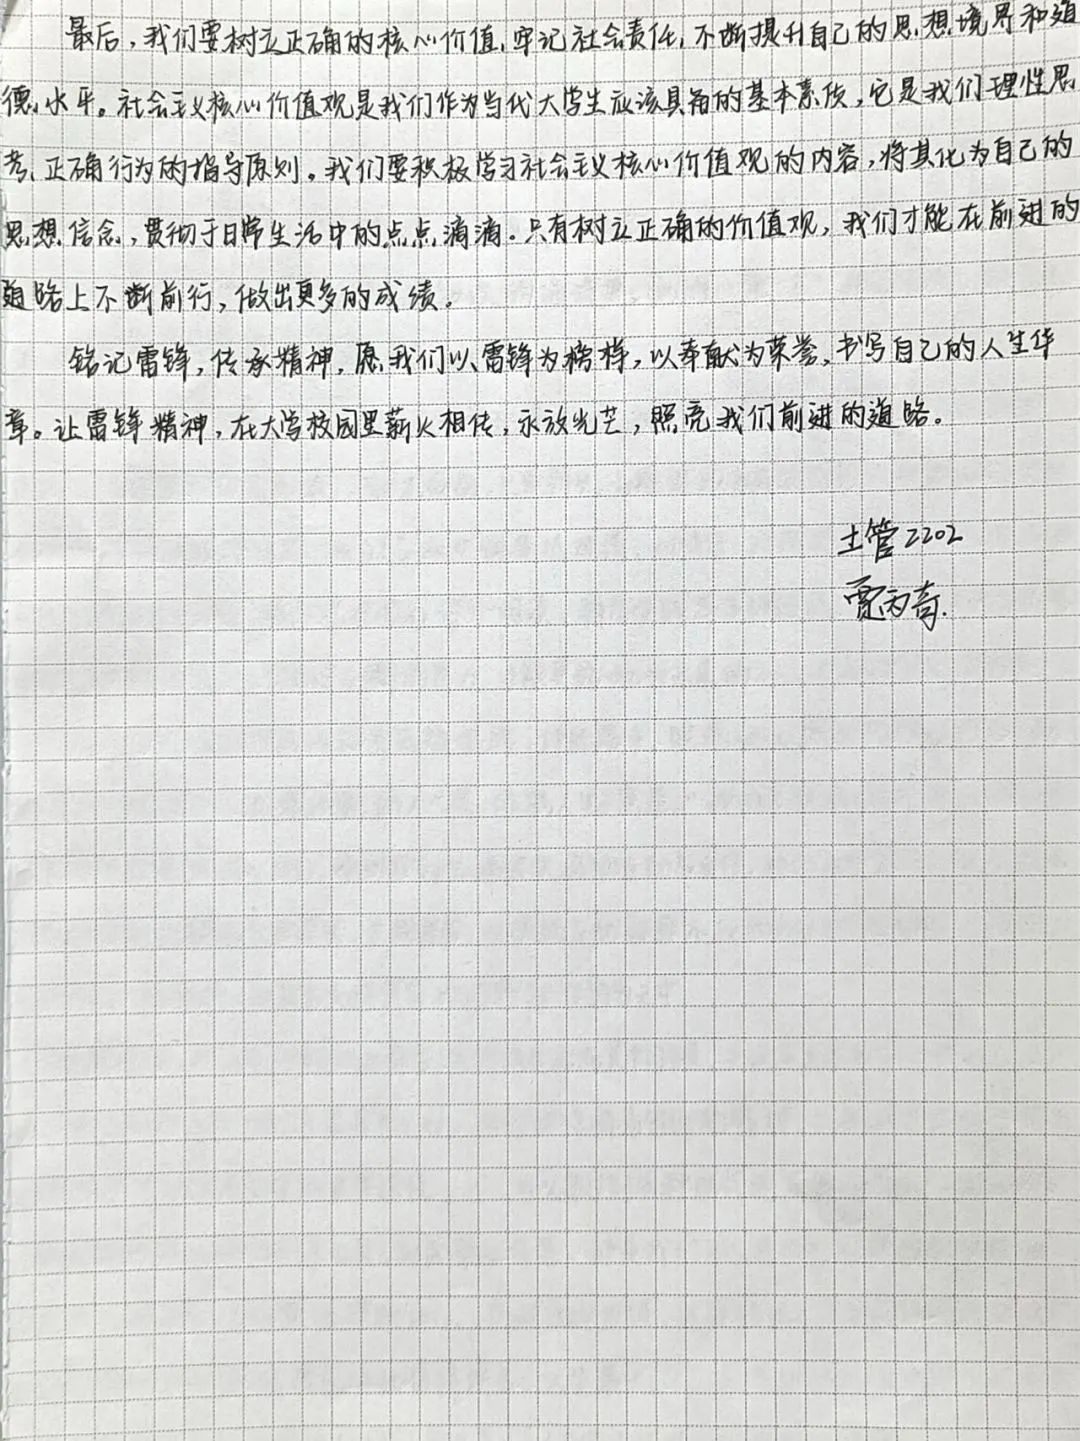 最后，我们要树立正确的核心价值，牢记社会责任，不断提升自己的思想境界和道
德水平。社会主义核心价值观是我们作为当代大学生应该具备的基本素质，它是我们理性思
考、正确行为的指导原则。我们要积极学习社会主义核心价值观的内容，将其化为自己的
思想信念，贯彻于日常生活中的点点滴滴。只有树立正确的价值观，我们才能在前进的
道路上不断前行，做出更多的成绩。
铭记雷锋，传承精神，愿我们以雷锋为榜样，以奉献为荣誉，书写自己的人生华
章。让雷锋精神，在大学校园里薪火相传，永放光芒，照亮我们前进的道路。
土管2202
贾丙奇.